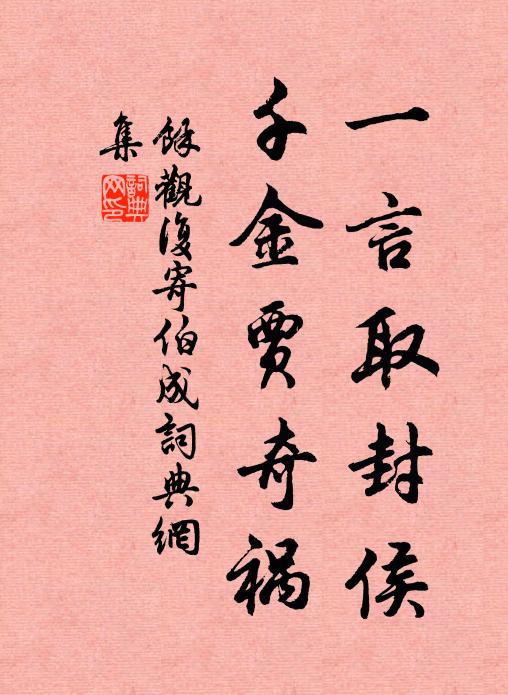 一言取封侯
千金賈奇禍
餘觀復寄伯成詞典網
集
詞典
网印